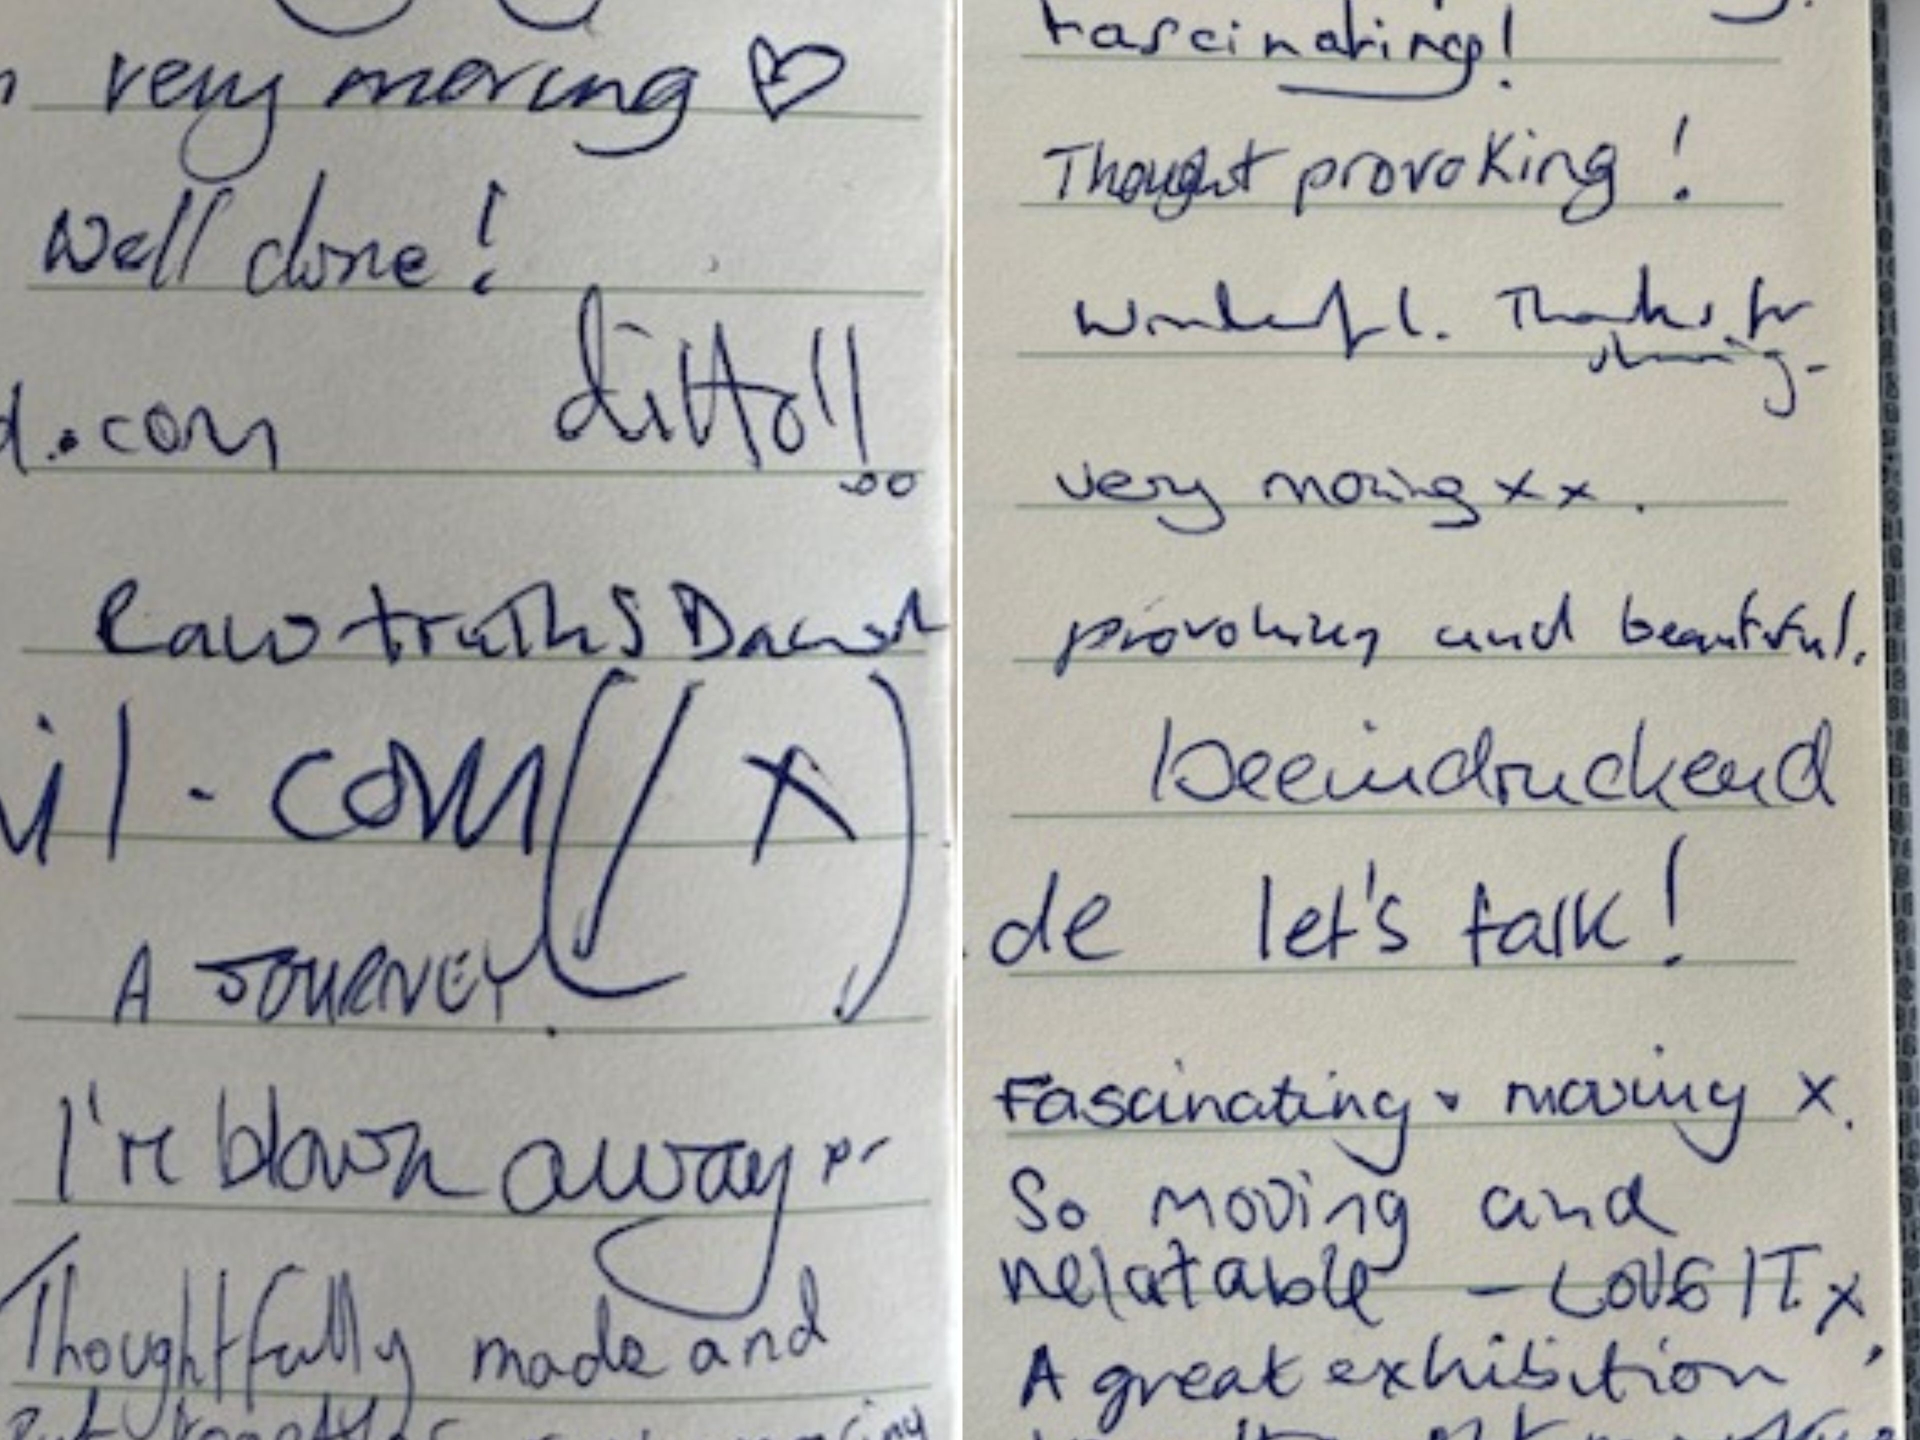 very moving ♡
Well done!
.com ditto!!
Raw truths
il.com (/ x)
A JOURNEY.
I'm blown away
Thoughtfully made and
Put together
Fascinating!
Thought provoking!
Wonderful. Thanks for
sharing.
very moving xx.
provoking and beautiful.
beeindruckend
de let's talk!
Fascinating + moving x.
So moving and
relatable – LOVE IT x
A great exhibition